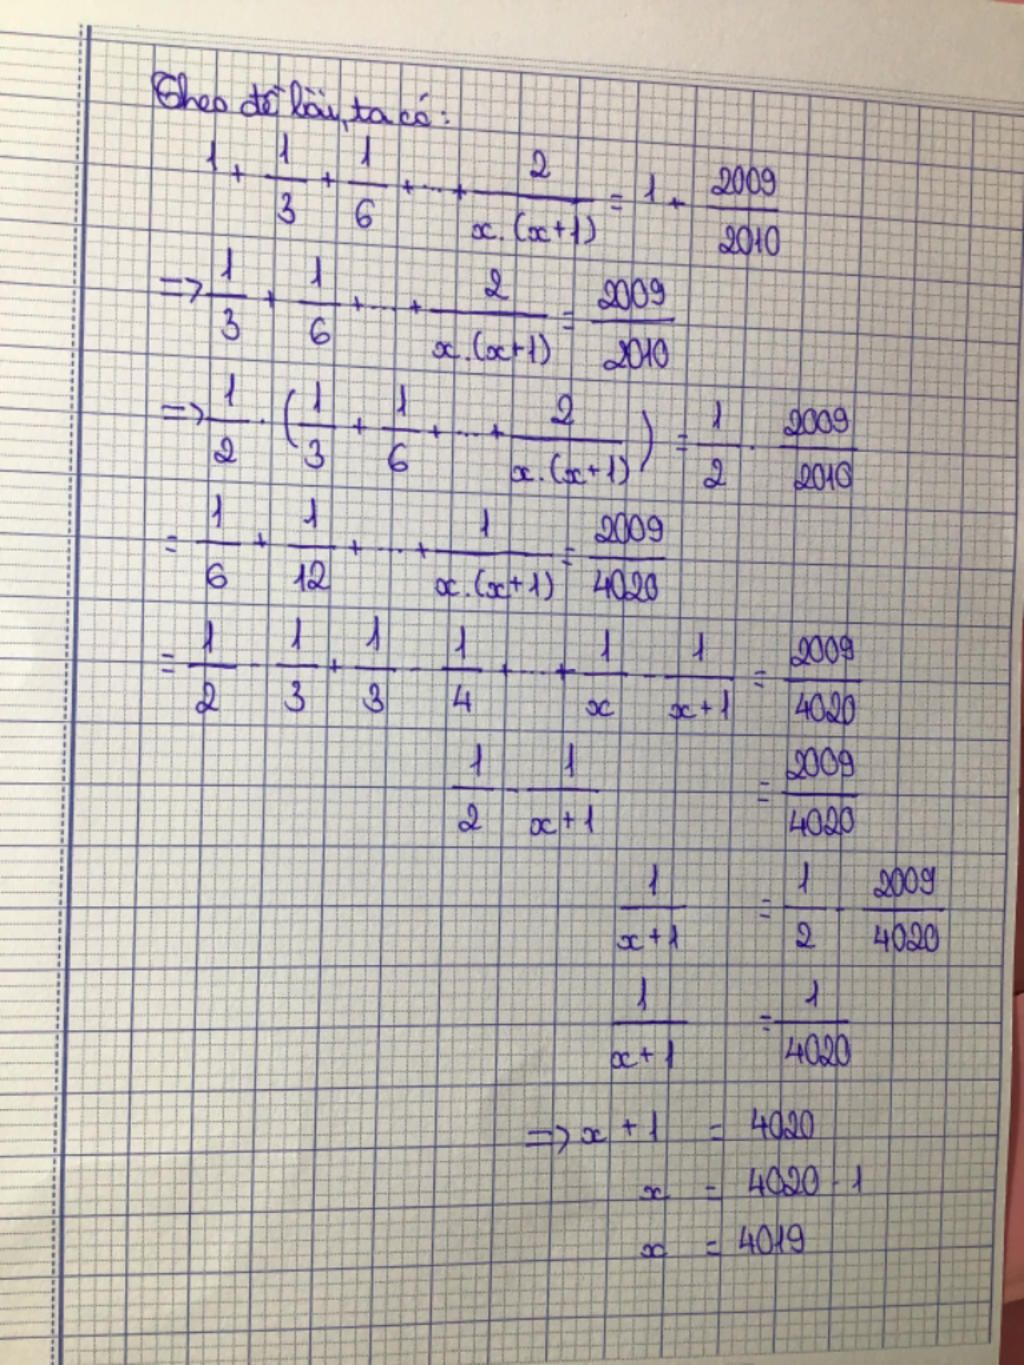 Theo đề bài, ta có:
1 + 1/3 + 1/6 + ... + 2/x.(x+1) = 1 + 2009/2010
=> 1/3 + 1/6 + ... + 2/x.(x+1) = 2009/2010
=> 1/2 . (1/3 + 1/6 + ... + 2/x.(x+1)) = 1/2 . 2009/2010
= 1/6 + 1/12 + ... + 1/x.(x+1) = 2009/4020
= 1/2 - 1/3 + 1/3 - 1/4 + ... + 1/x - 1/x+1 = 2009/4020
1/2 - 1/x+1 = 2009/4020
1/x+1 = 1/2 - 2009/4020
1/x+1 = 1/4020
=> x + 1 = 4020
x = 4020 - 1
x = 4019